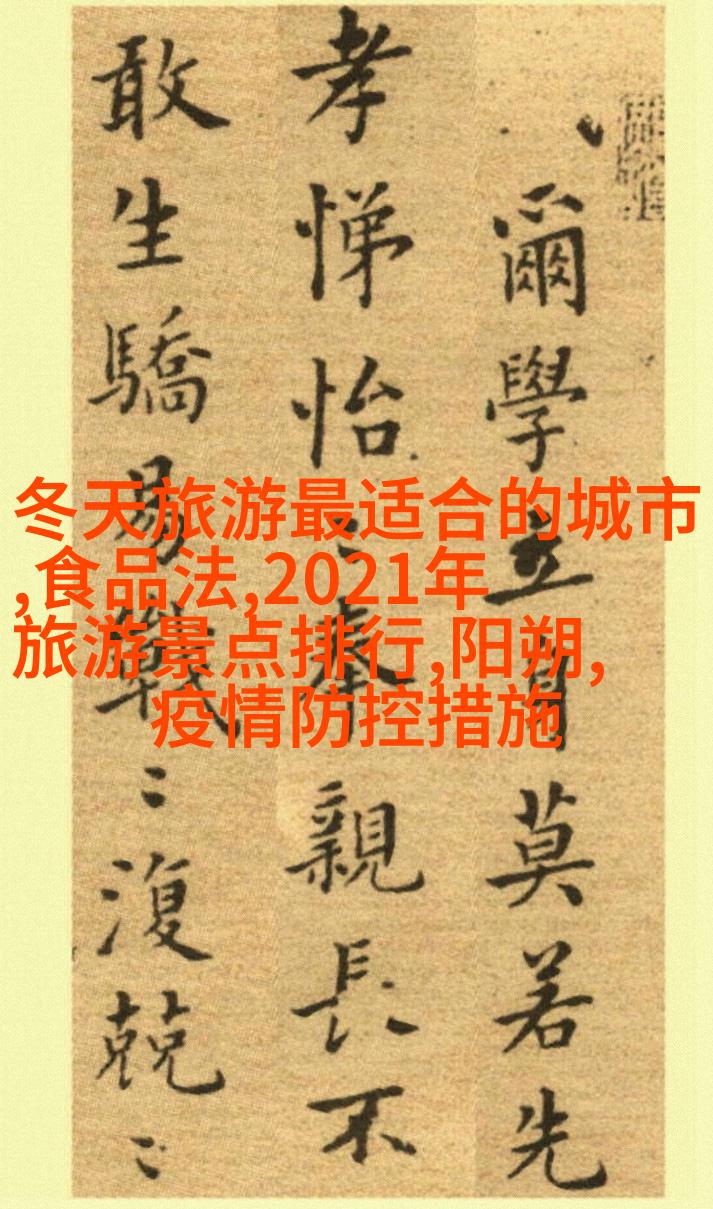 爾學立身莫若先
孝悌怡〻奉親長不
敢生驕易戰〻復兢〻
冬天旅游最适合的城市
,食品法,2021年
旅游景点排行,阳朔,
疫情防控措施